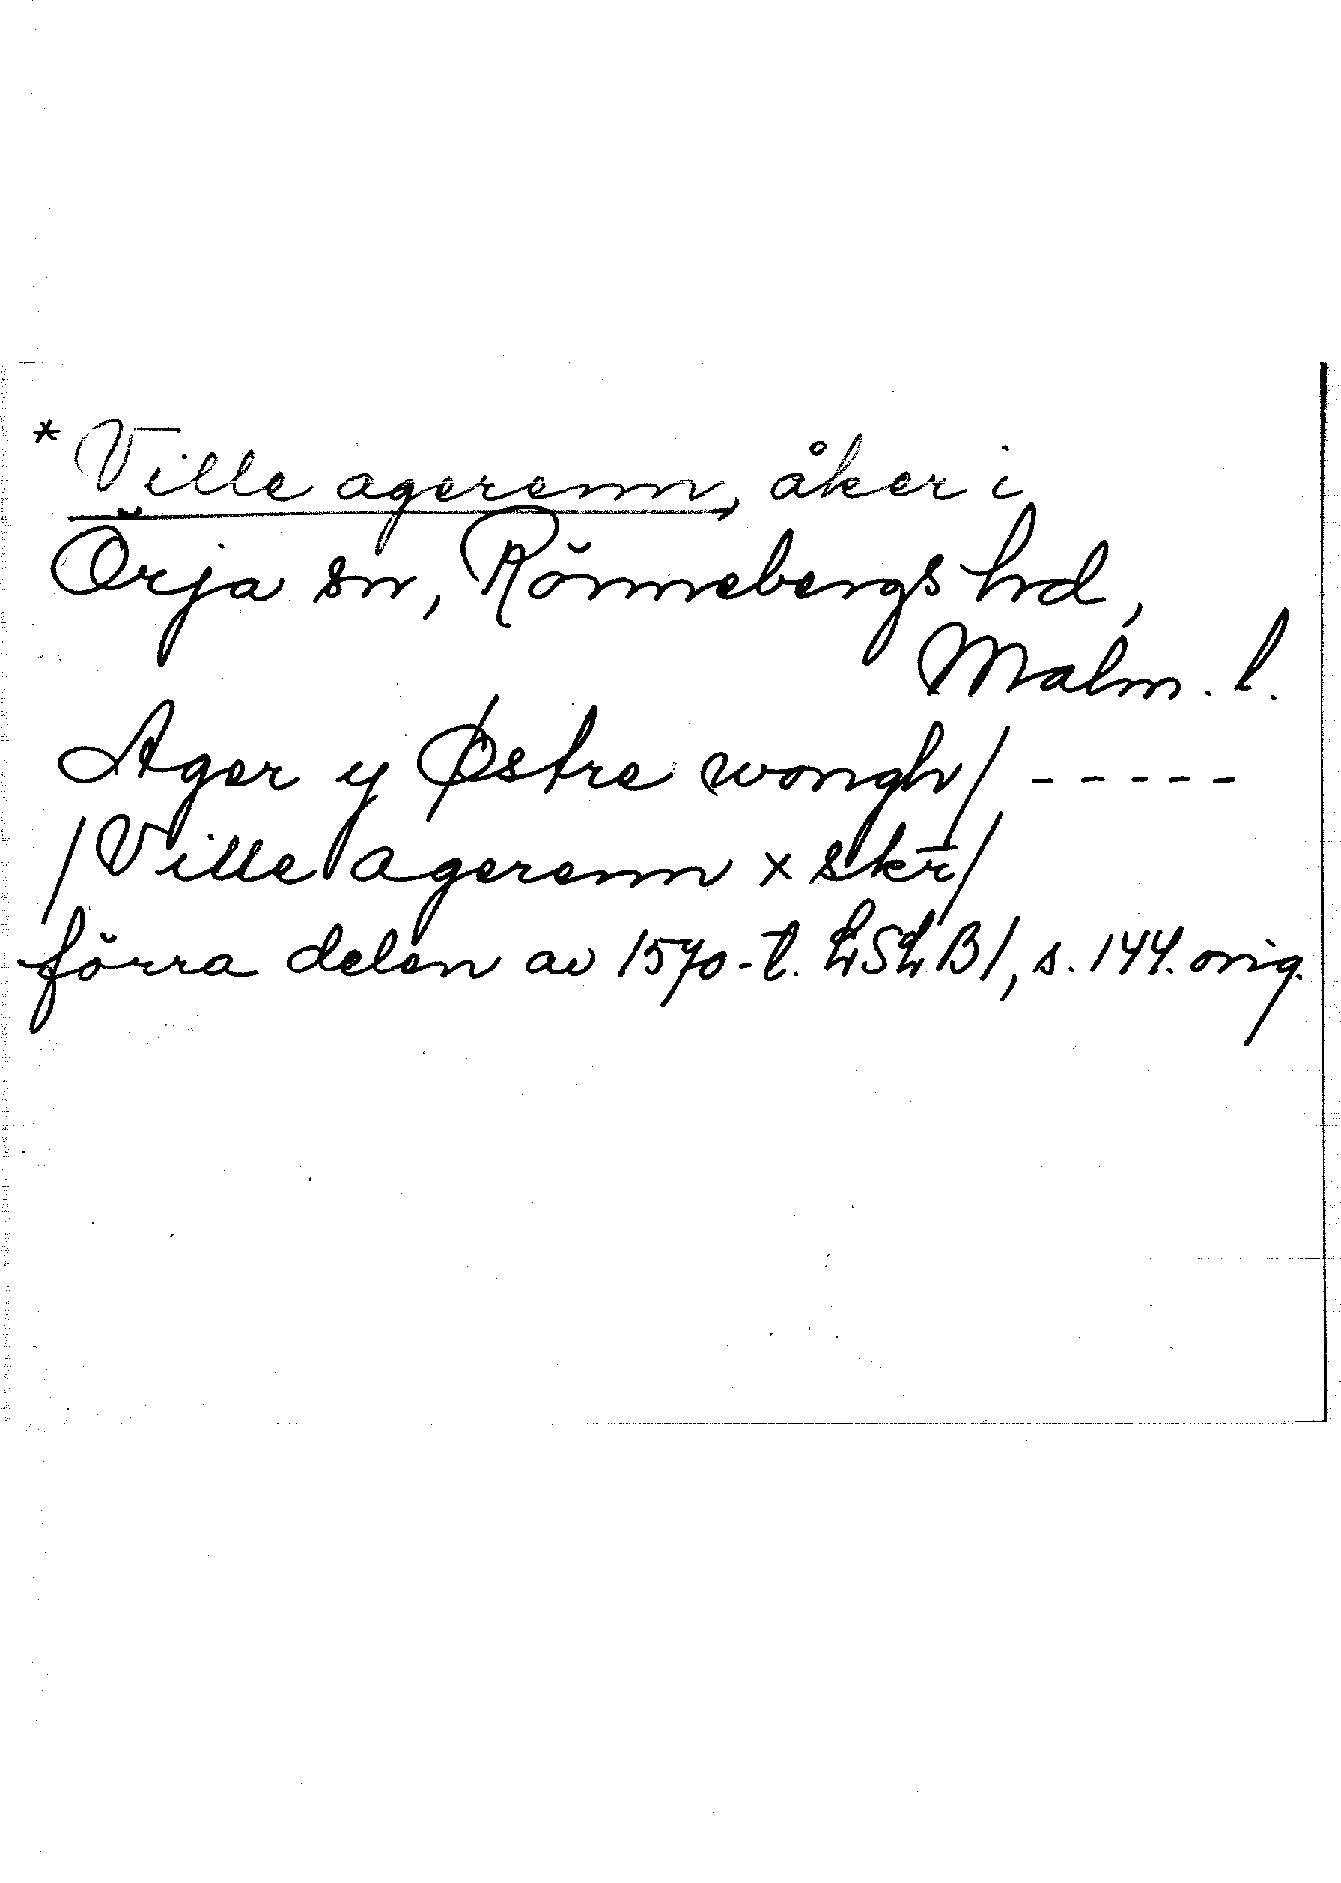 * Ville agerenn, åker i
Örja sn, Rönnebergs hd,
Malm. l.
Ager y Østre wongh/ - - - - -
/Ville agerenn x skr/
förra delen av 1570-t. LSLB1, s. 144. orig.